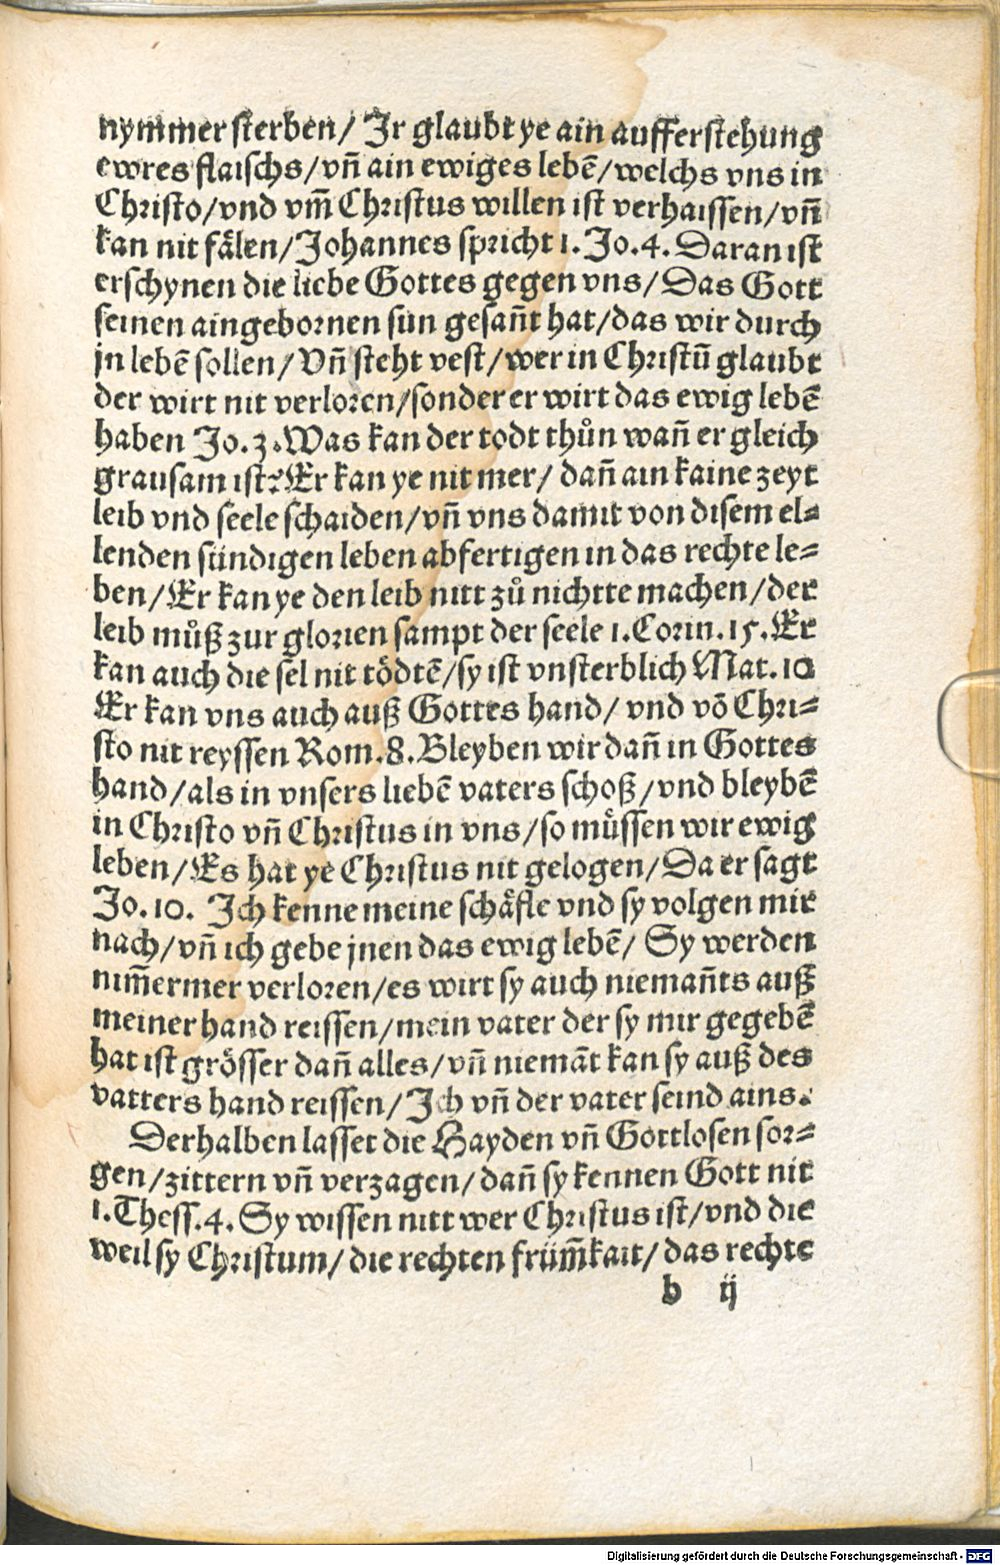 nymmer sterben/ Jr glaubt ye ain aufferstehung
ewres flaischs/vn̄ ain ewiges lebē/welchs vns in
Christo/vnd vm̄ Christus willen ist verhaissen/vn̄
kan nit fålen/Johannes spricht 1. Jo. 4. Daran ist
erschynen die liebe Gottes gegen vns/ Das Gott
seinen aingebornen sun gesan̄t hat/das wir durch
jn lebē sollen/ Vn̄ steht vest/wer in Christū glaubt
der wirt nit verloren/sonder er wirt das ewig lebē
haben Jo. 3. Was kan der todt thůn wan̄ er gleich
grausam ist? Er kan ye nit mer/ dan̄ ain kaine zeyt
leib vnd seele schaiden/vn̄ vns damit von disem el⸗
lenden sündigen leben abfertigen in das rechte le⸗
ben/Er kan ye den leib nitt zů nichtte machen/der
leib můß zur glorien sampt der seele 1. Corin. 15. Er
kan auch die sel nit tödtē/sy ist vnsterblich Mat. 10
Er kan vns auch auß Gottes hand/ vnd vō Chri⸗
sto nit reyssen Rom. 8. Bleyben wir dan̄ in Gottes
hand/als in vnsers liebē vaters schoß/vnd bleybē
in Christo vn̄ Christus in vns/so müssen wir ewig
leben/Es hat ye Christus nit gelogen/Da er sagt
Jo. 10. Ich kenne meine schäfle vnd sy volgen mir
nach/vn̄ ich gebe jnen das ewig lebē/ Sy werden
nim̄ermer verloren/es wirt sy auch nieman̄ts auß
meiner hand reissen/mein vater der sy mir gegebē
hat ist grösser dan̄ alles/vn̄ niemāt kan sy auß des
vatters hand reissen/ Ich vn̄ der vater seind ains.
Derhalben lasset die Hayden vn̄ Gottlosen sor⸗
gen/zittern vn̄ verzagen/dan̄ sy kennen Gott nit
1. Thess. 4. Sy wissen nitt wer Christus ist/vnd die
weil sy Christum/ die rechten früm̄kait/ das rechte
b ij
Digitalisierung gefördert durch die Deutsche Forschungsgemeinschaft - DFG